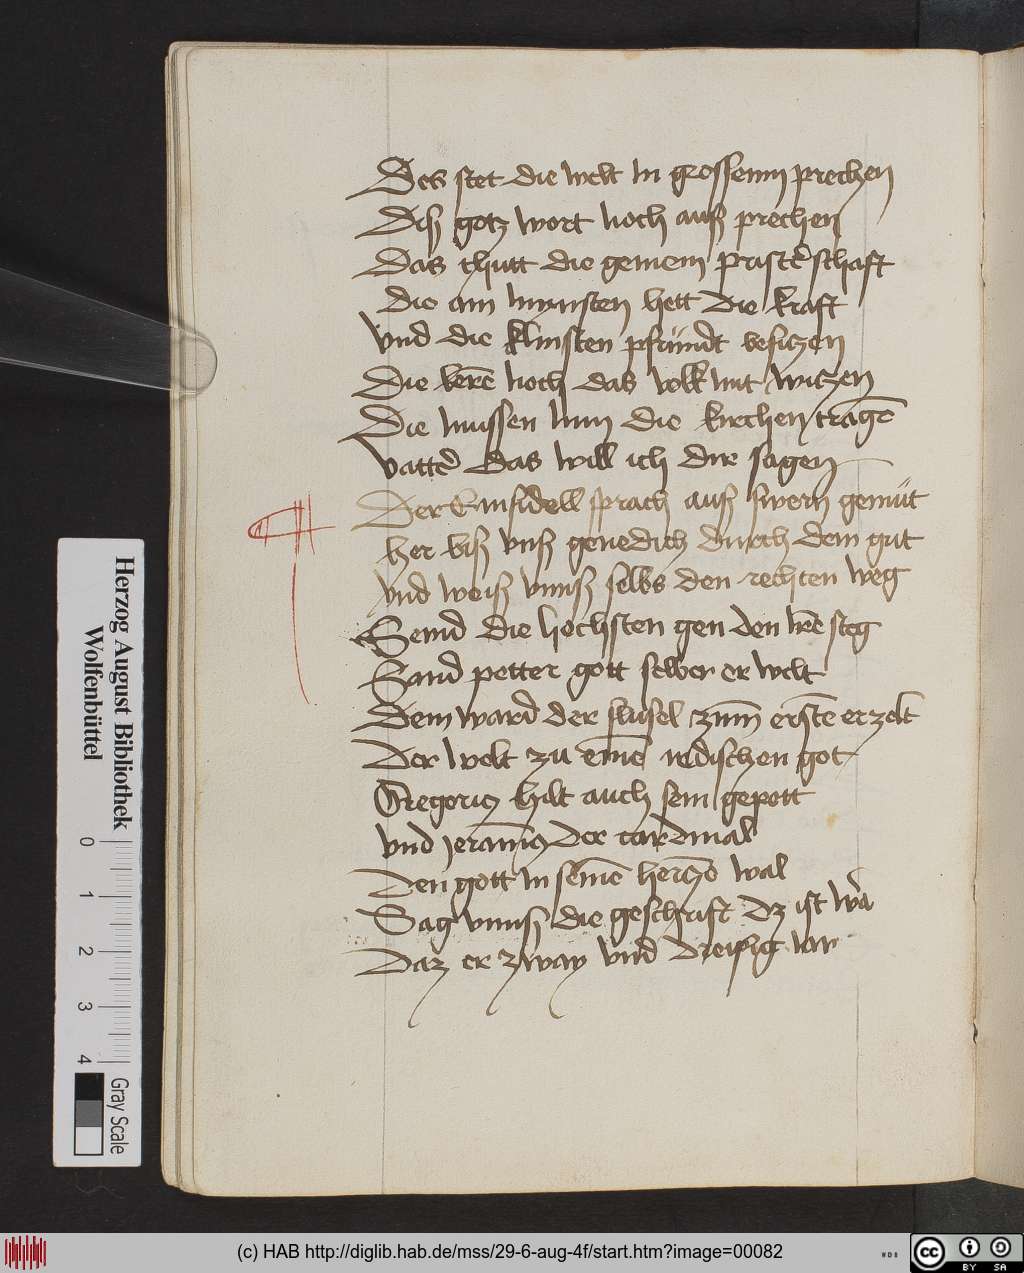 Des stet die welt In grossenn prechen
Diß gotz wort noch auß prechen
Das thutt die gemein pristerschaft
Die am mynnsten hett die kraft
Vnd die klinsten pfründt besitzen
Die kerē noch das volk mit witzen
Die mussen nun die kirchen tragē
vatter das will ich dir sagen
Der Einsidell sprach auß swern gemüt
her biß vnß genedich durch dein gut
vnd weiß vnnß selbs den rechten weg
Seind die hochsten gen den steg
Sand petter gott selber er welt
Dem ward der slusel zum erstē erzelt
Der welt zu einē irdischen got
Gregorius hilt auch sein gepott
vnd Jeramus der cardinal
Den gott In seinē hertzē wal
Sag vnnß die geschrift dz ist war
Daz er zway vnd dreissig iar
Herzog August Bibliothek
Wolfenbüttel
0 1 2 3 4
Gray Scale
(c) HAB http://diglib.hab.de/mss/29-6-aug-4f/start.htm?image=00082
WDB
cc BY SA